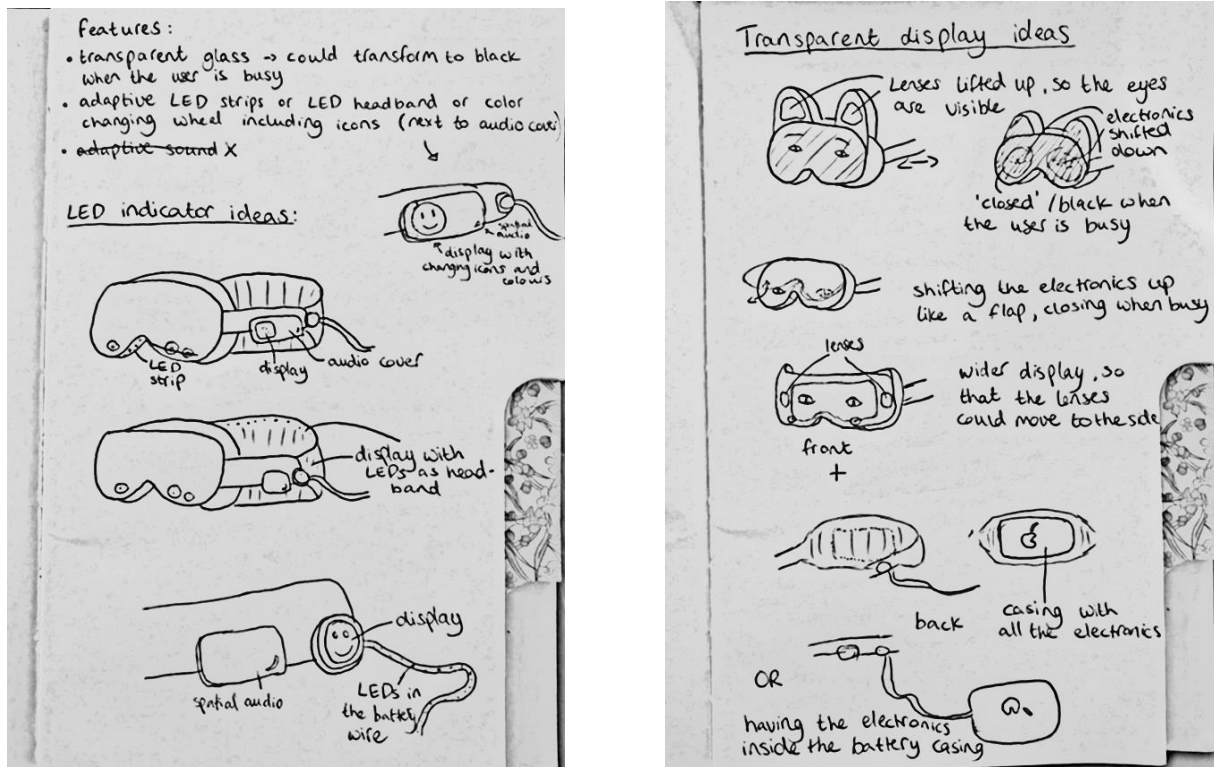 Features:
• transparent glass → could transform to black
when the user is busy
• adaptive LED strips or LED headband or color
changing wheel including icons (next to audio cover)
• adaptive sound X
LED indicator ideas:
spatial
audio
display with
changing icons and
colours
LED
strip
display
audio cover
display with
LEDs as head-
band
display
spatial audio
LEDs in
the battery
wire
Transparent display ideas
Lenses lifted up, so the eyes
are visible
electronics
shifted
down
'closed'/black when
the user is busy
shifting the electronics up
like a flap, closing when busy
lenses
wider display, so
that the lenses
could move to the side
front
+
back
casing with
all the electronics
OR
having the electronics
inside the battery casing